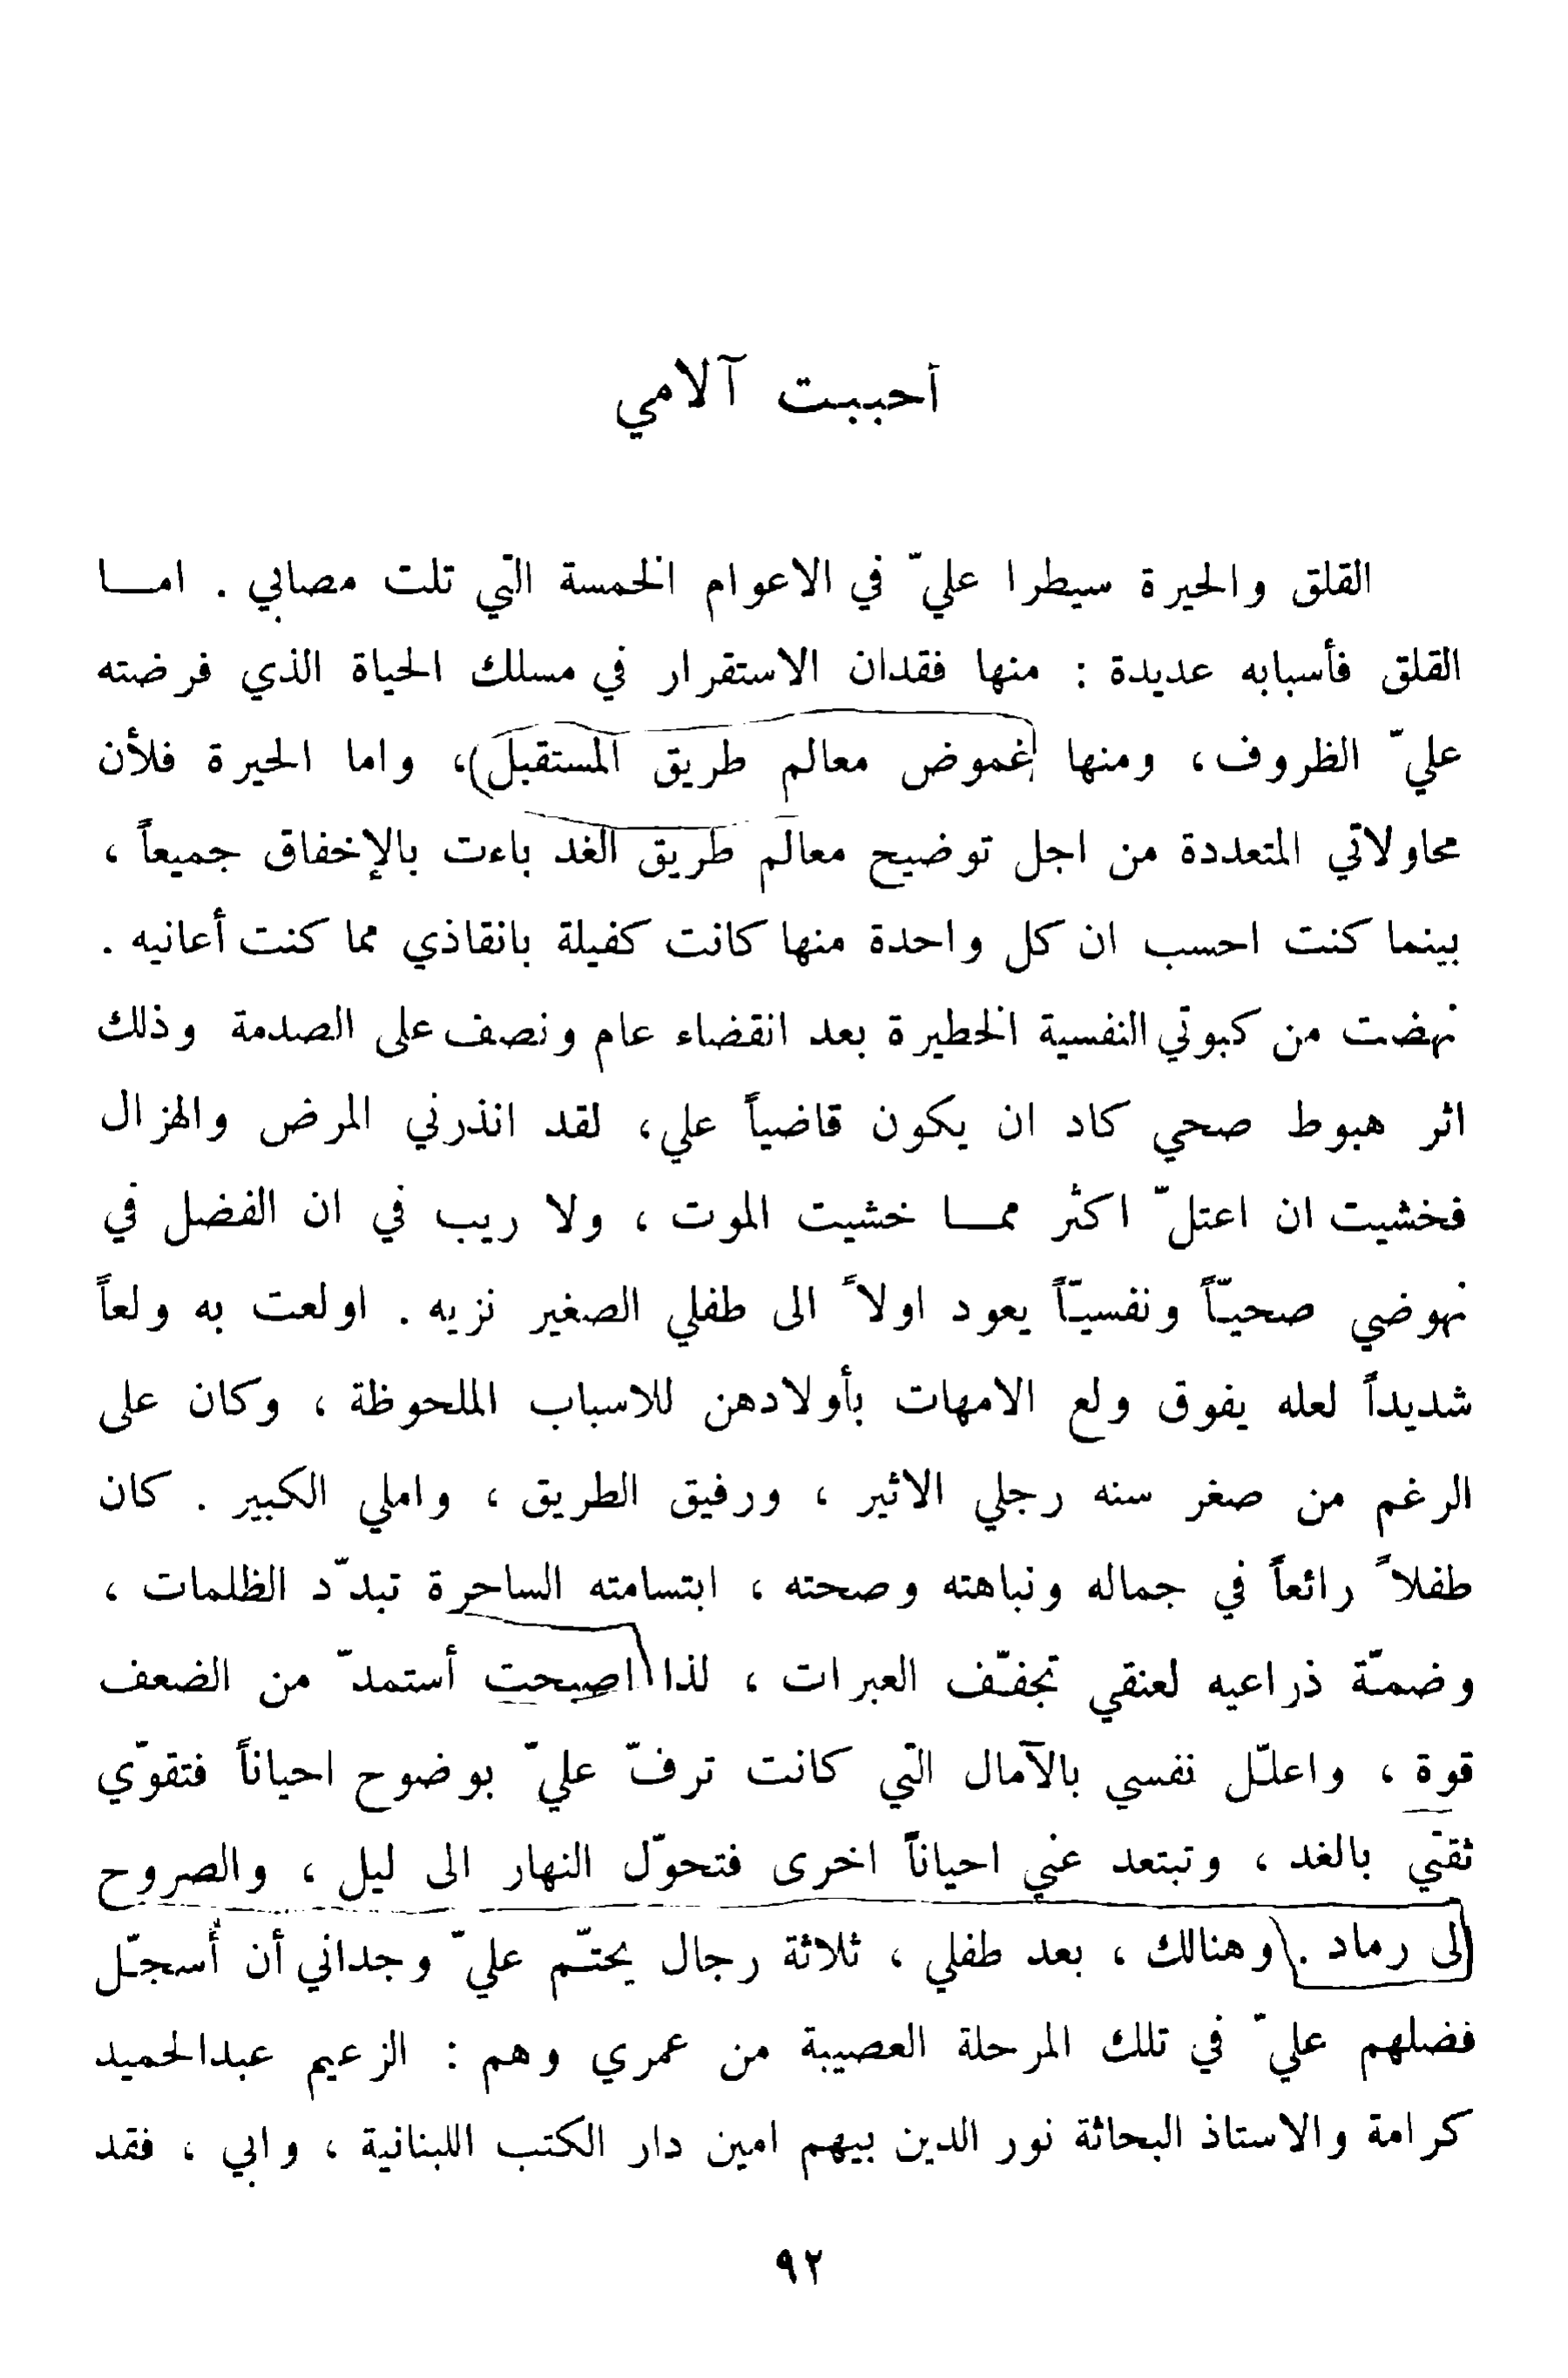 أحببت آلامي
القلق والحيرة سيطرا عليّ في الاعوام الخمسة التي تلت مصابي . امـــا
القلق فأسبابه عديدة : منها فقدان الاستقرار في مسلك الحياة الذي فرضته
عليّ الظروف، ومنها (غموض معالم طريق المستقبل)، واما الحيرة فلأن
محاولاتي المتعددة من اجل توضيح معالم طريق الغد باءت بالإخفاق جميعاً ،
بينما كنت احسب ان كل واحدة منها كانت كفيلة بانقاذي مما كنت أعانيه .
نهضت من كبوتي النفسية الخطيرة بعد انقضاء عام ونصف على الصدمة وذلك
اثر هبوط صحي كاد ان يكون قاضياً علي، لقد انذرني المرض والهزال
فخشيت ان اعتلّ اكثر ممـــا خشيت الموت ، ولا ريب في ان الفضل في
نهوضي صحيّاً ونفسيّاً يعود اولاً الى طفلي الصغير نزيه . اولعت به ولعاً
شديداً لعله يفوق ولع الامهات بأولادهن للاسباب الملحوظة ، وكان على
الرغم من صغر سنه رجلي الاثير ، ورفيق الطريق ، واملي الكبير . كان
طفلاً رائعاً في جماله ونباهته وصحته ، ابتسامته الساحرة تبدّد الظلمات ،
وضمّة ذراعيه لعنقي تجفّف العبرات ، لذا اصبحت أستمدّ من الضعف
قوة ، واعلّل نفسي بالآمال التي كانت ترفّ عليّ بوضوح احياناً فتقوّي
ثقتي بالغد ، وتبتعد عني احياناً اخرى فتحوّل النهار الى ليل ، والصروح
إلى رماد . وهنالك ، بعد طفلي ، ثلاثة رجال يحتّم عليّ وجداني أن أُسجّل
فضلهم عليّ في تلك المرحلة العصيبة من عمري وهم : الزعيم عبدالحميد
كرامة والاستاذ البحاثة نور الدين بيهم امين دار الكتب اللبنانية ، وابي ، فقد
٩٢